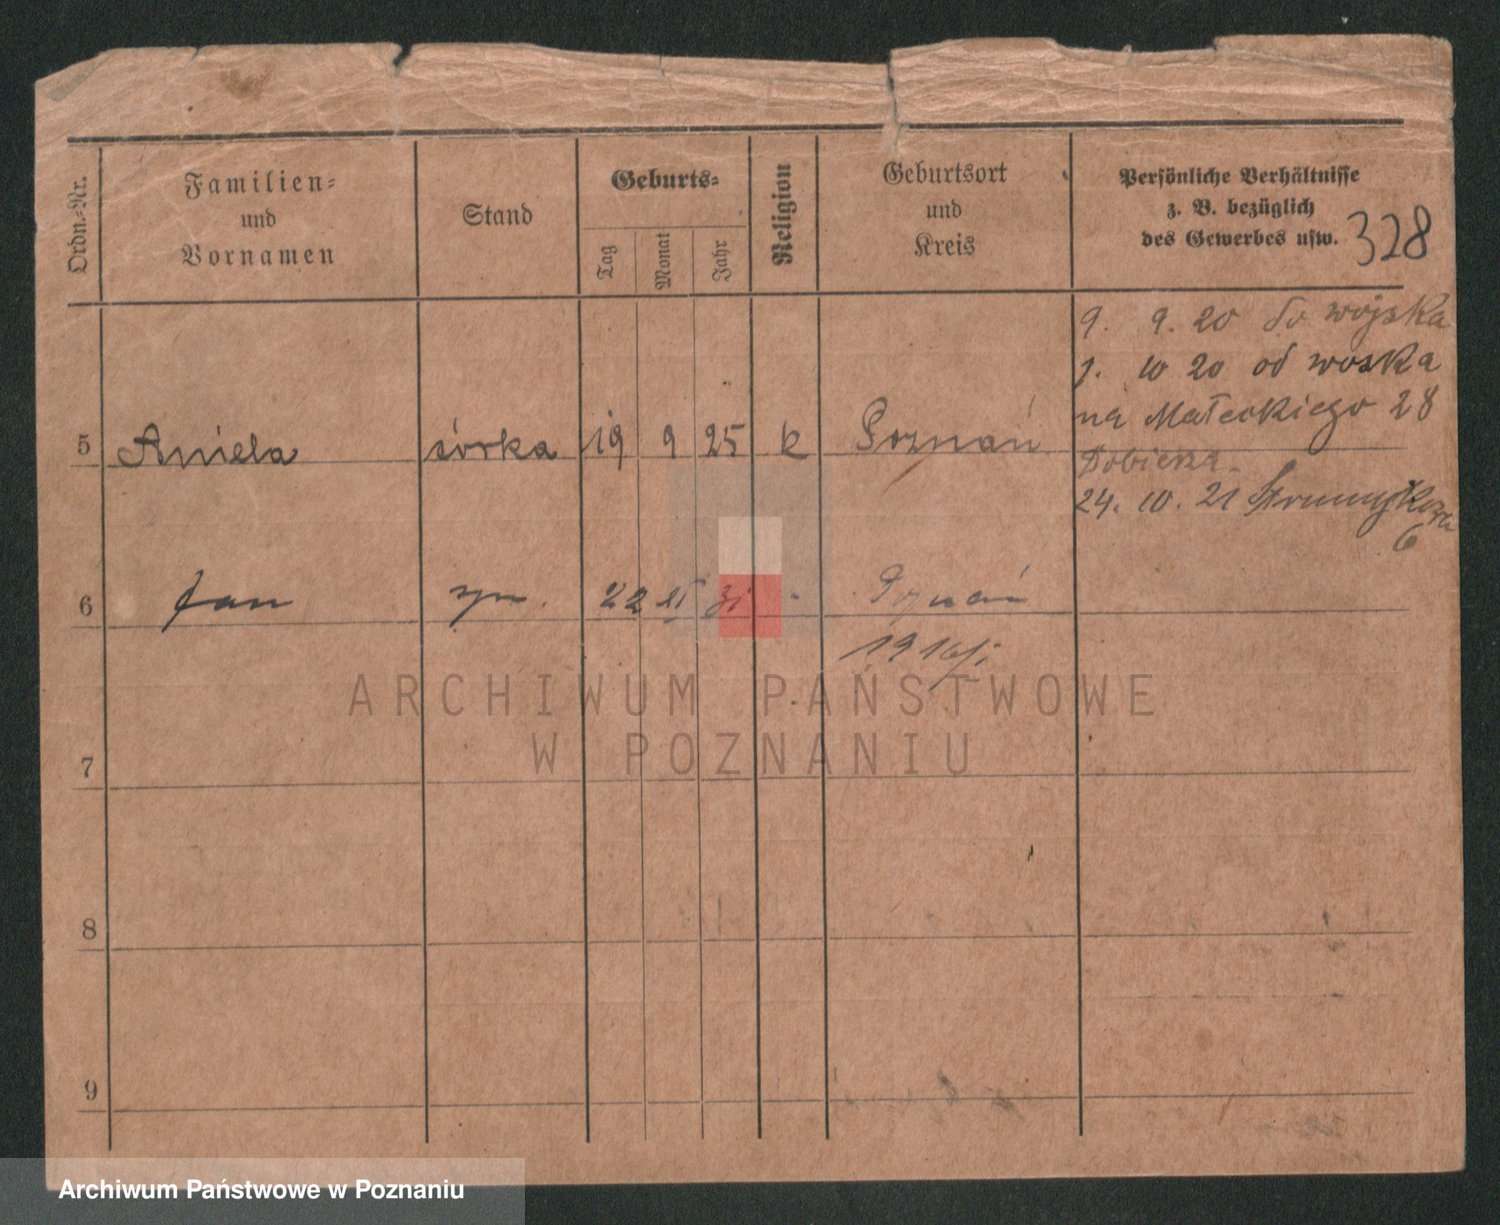 Ordn.-Nr.
Familien-
und
Vornamen
Stand
Geburts-
Tag
Monat
Jahr
Religion
Geburtsort
und
Kreis
Persönliche Verhältnisse
z. B. bezüglich
des Gewerbes usw.
328
9. 9. 20 do wojska
1. 10 20 od woska
na Małeckiego 28
Dobierza
24. 10. 21
6
5 Aniela córka 19 9 25 k Poznań
6 Jan syn. 22 11 31 - Poznań
ARCHIWUM PAŃSTWOWE
W POZNANIU
7
8
9
Archiwum Państwowe w Poznaniu